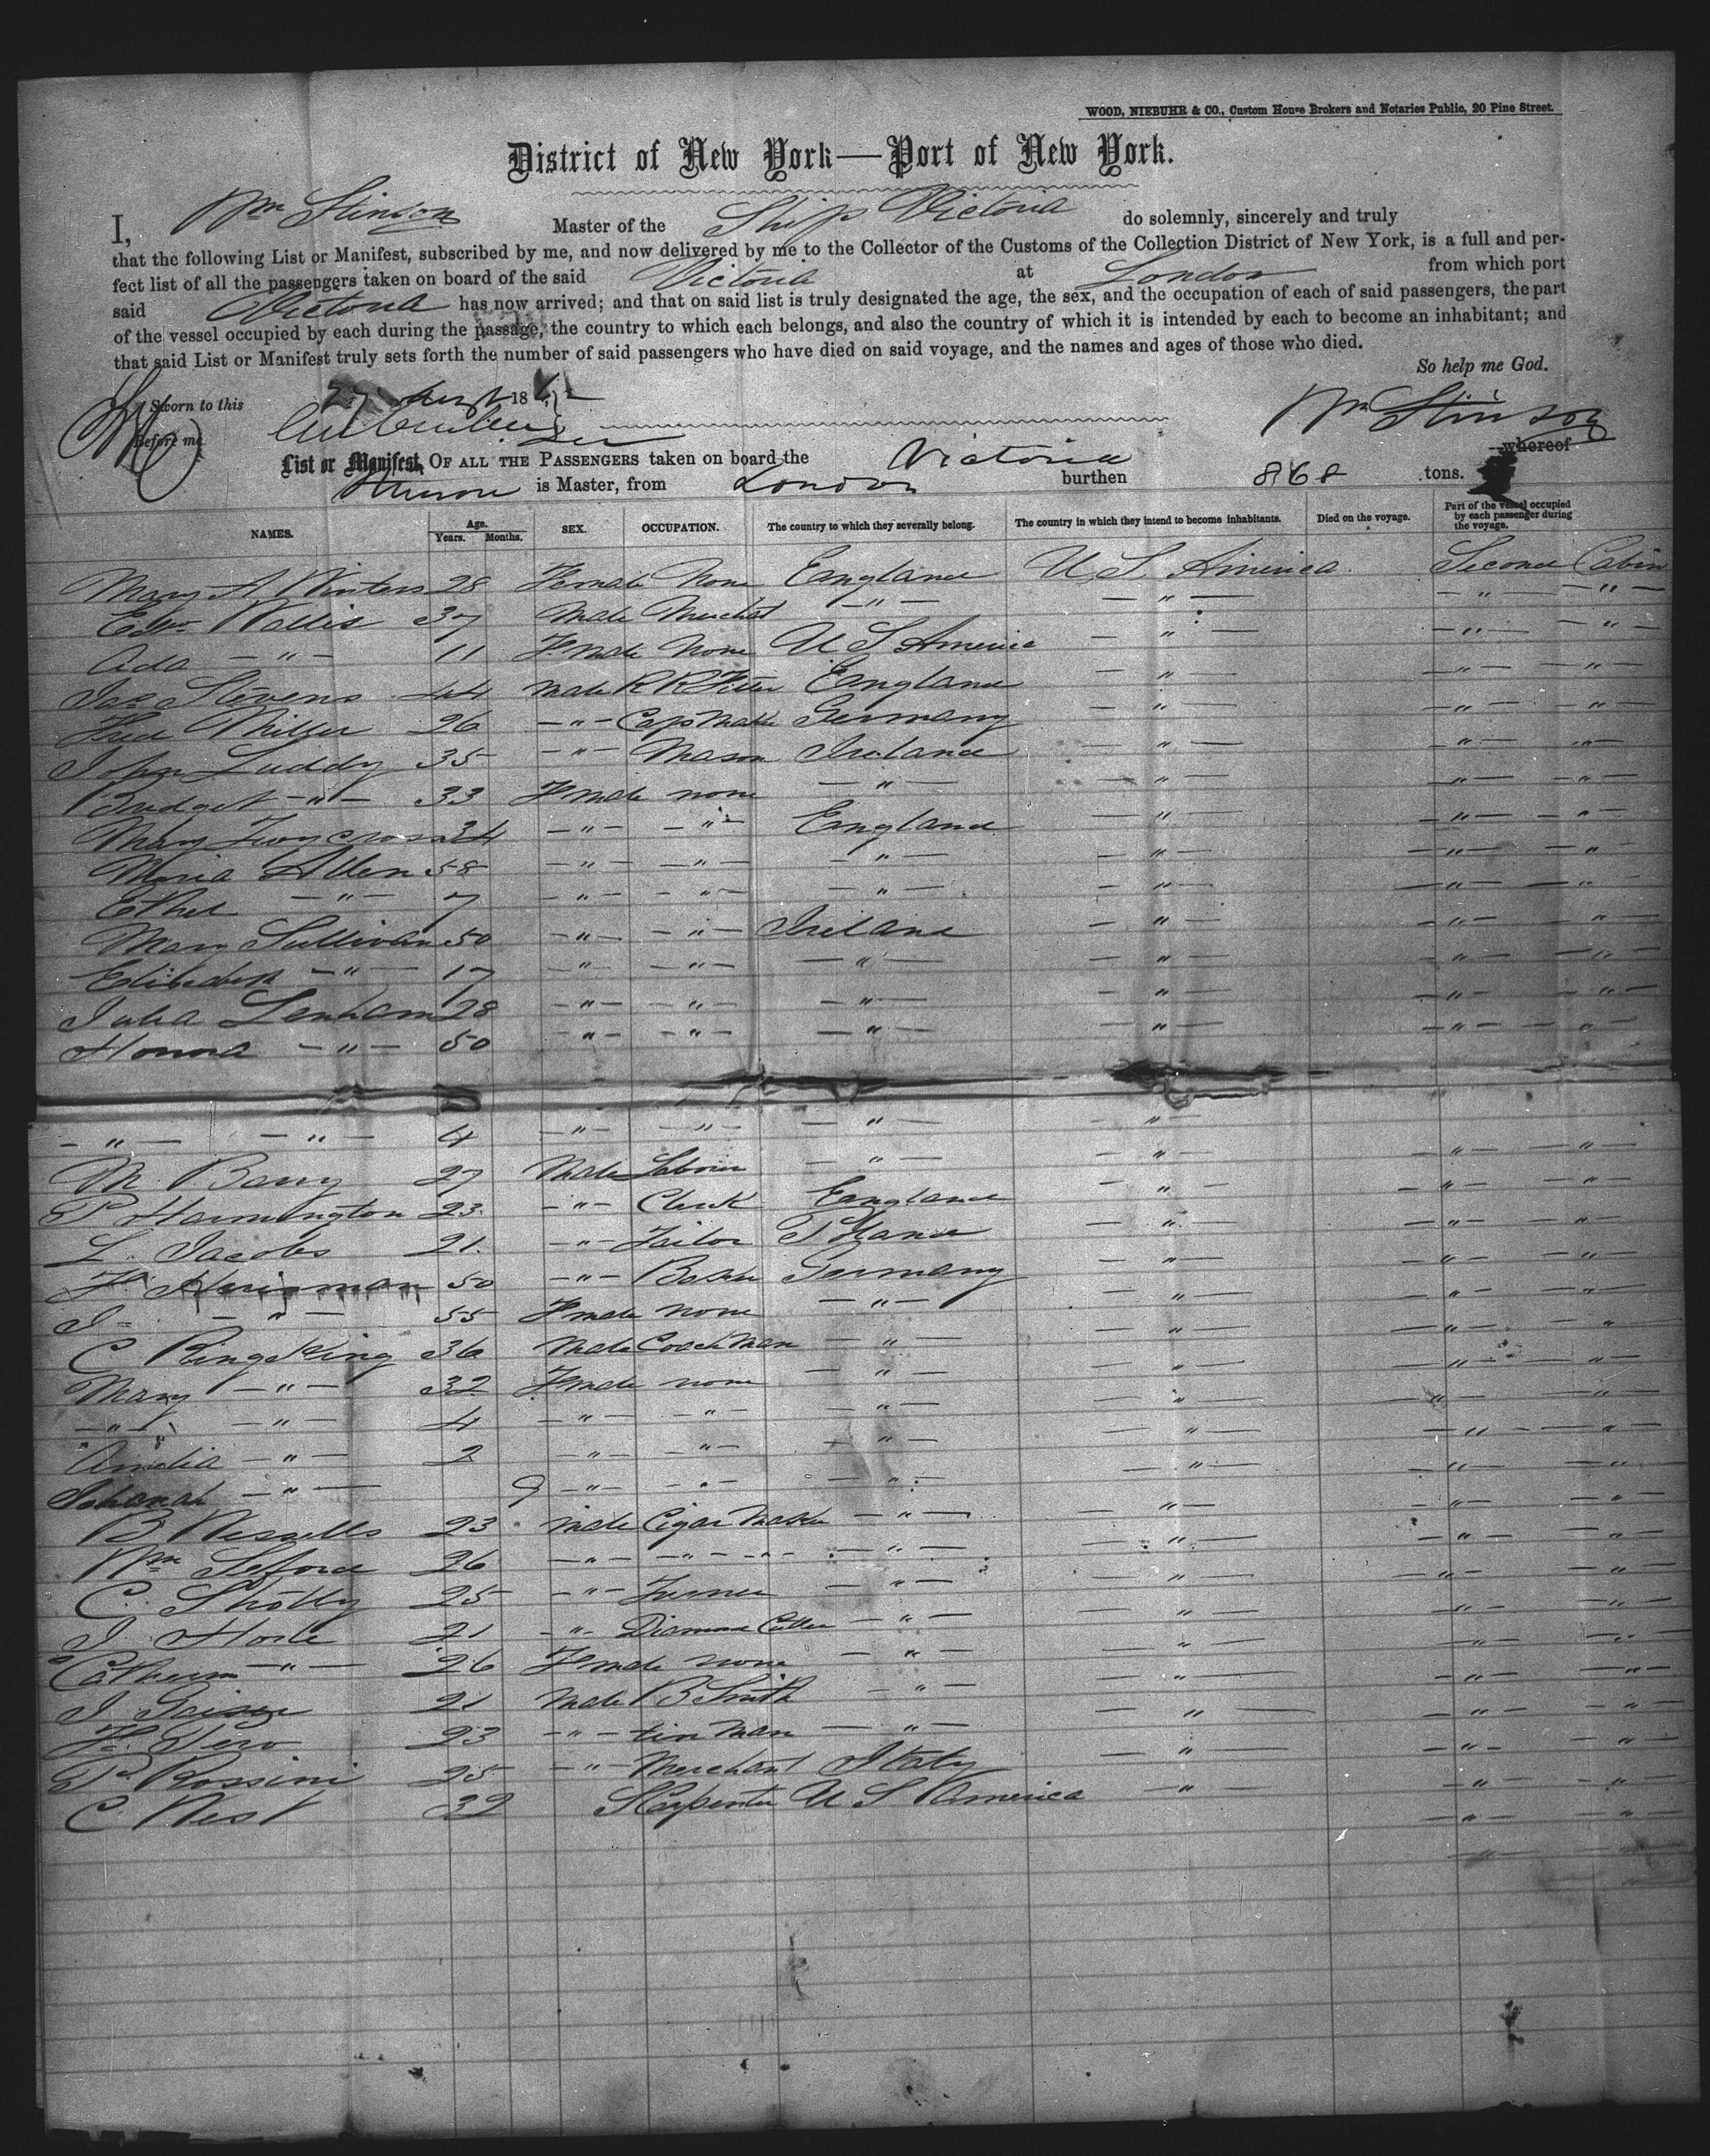 WOOD, NIEBUHR & CO., Custom House Brokers and Notaries Public, 20 Pine Street.
District of New York—Port of New York.
I, Wm Stinson Master of the Ship Victoria do solemnly, sincerely and truly
that the following List or Manifest, subscribed by me, and now delivered by me to the Collector of the Customs of the Collection District of New York, is a full and per-
fect list of all the passengers taken on board of the said Victoria at London from which port
said Victoria has now arrived; and that on said list is truly designated the age, the sex, and the occupation of each of said passengers, the part
of the vessel occupied by each during the passage, the country to which each belongs, and also the country of which it is intended by each to become an inhabitant; and
that said List or Manifest truly sets forth the number of said passengers who have died on said voyage, and the names and ages of those who died.
So help me God.
Sworn to this 27 18
Before me Wm Stinson
List or Manifest, OF ALL THE PASSENGERS taken on board the Victoria whereof
is Master, from London burthen 868 tons.
NAMES. Age. Years. Months. SEX. OCCUPATION. The country to which they severally belong. The country in which they intend to become inhabitants. Died on the voyage. Part of the vessel occupied by each passenger during the voyage.
Mary A Winters 28 Female None England U S America Second Cabin
Edwd Wallis 37 Male Merchat — " — — " — — " — — " —
Ada — " — 11 Female None U S America — " — — " — — " —
Jas Stevens 44 Male R R England — " — — " — — " —
Fred Miller 26 — " — Cap Make Germany — " — — " — — " —
John Luddy 35 — " — Mason Ireland — " — — " — — " —
Bridget — " — 33 Female none — " — — " — — " — — " —
Mary Twycross 34 — " — — " — England — " — — " — — " —
Maria Allen 58 — " — — " — — " — — " — — " — — " —
Ethel — " — 7 — " — — " — — " — — " — — " — — " —
Mary Sullivan 50 — " — — " — Ireland — " — — " — — " —
Elisabeth — " — 17 — " — — " — — " — — " — — " — — " —
Julia Lenham 28 — " — — " — — " — — " — — " — — " —
Honora — " — 50 — " — — " — — " — — " — — " — — " —
— " — — " — 4 — " — — " — — " — — " —
M. Barry 27 Male Labour — " — — " — — " — — " —
P Harrington 23 — " — Clerk England — " — — " — — " —
L. Jacobs 21 — " — Tailor — " — — " — — " —
F. 50 — " — Baker Germany — " — — " — — " —
J — " — 55 Female none — " — — " — — " — — " —
C Ringelking 36 Male Coach Man — " — — " — — " — — " —
Mary — " — 32 Female none — " — — " — — " — — " —
— " — — " — 4 — " — — " — — " — — " — — " — — " —
Amelia — " — 2 — " — — " — — " — — " — — " — — " —
Johanah — " — 9 — " — — " — — " — — " — — " — — " —
B Wessells 23 male Cigar Maker — " — — " — — " — — " —
Wm Seford 26 — " — — " — — " — — " — — " — — " — — " —
C. Shotty 25 — " — Turner — " — — " — — " — — " —
J. Horle 21 — " — Diamond Cutter — " — — " — — " — — " —
Catherin — " — 26 Female none — " — — " — — " — — " —
J 21 Male B Smith — " — — " — — " — — " —
F. Pero 23 — " — tin Man — " — — " — — " — — " —
Pd Rossini 25 — " — Merchant Italy — " — — " — — " —
C West 32 Carpenter U S America — " — — " — — " —